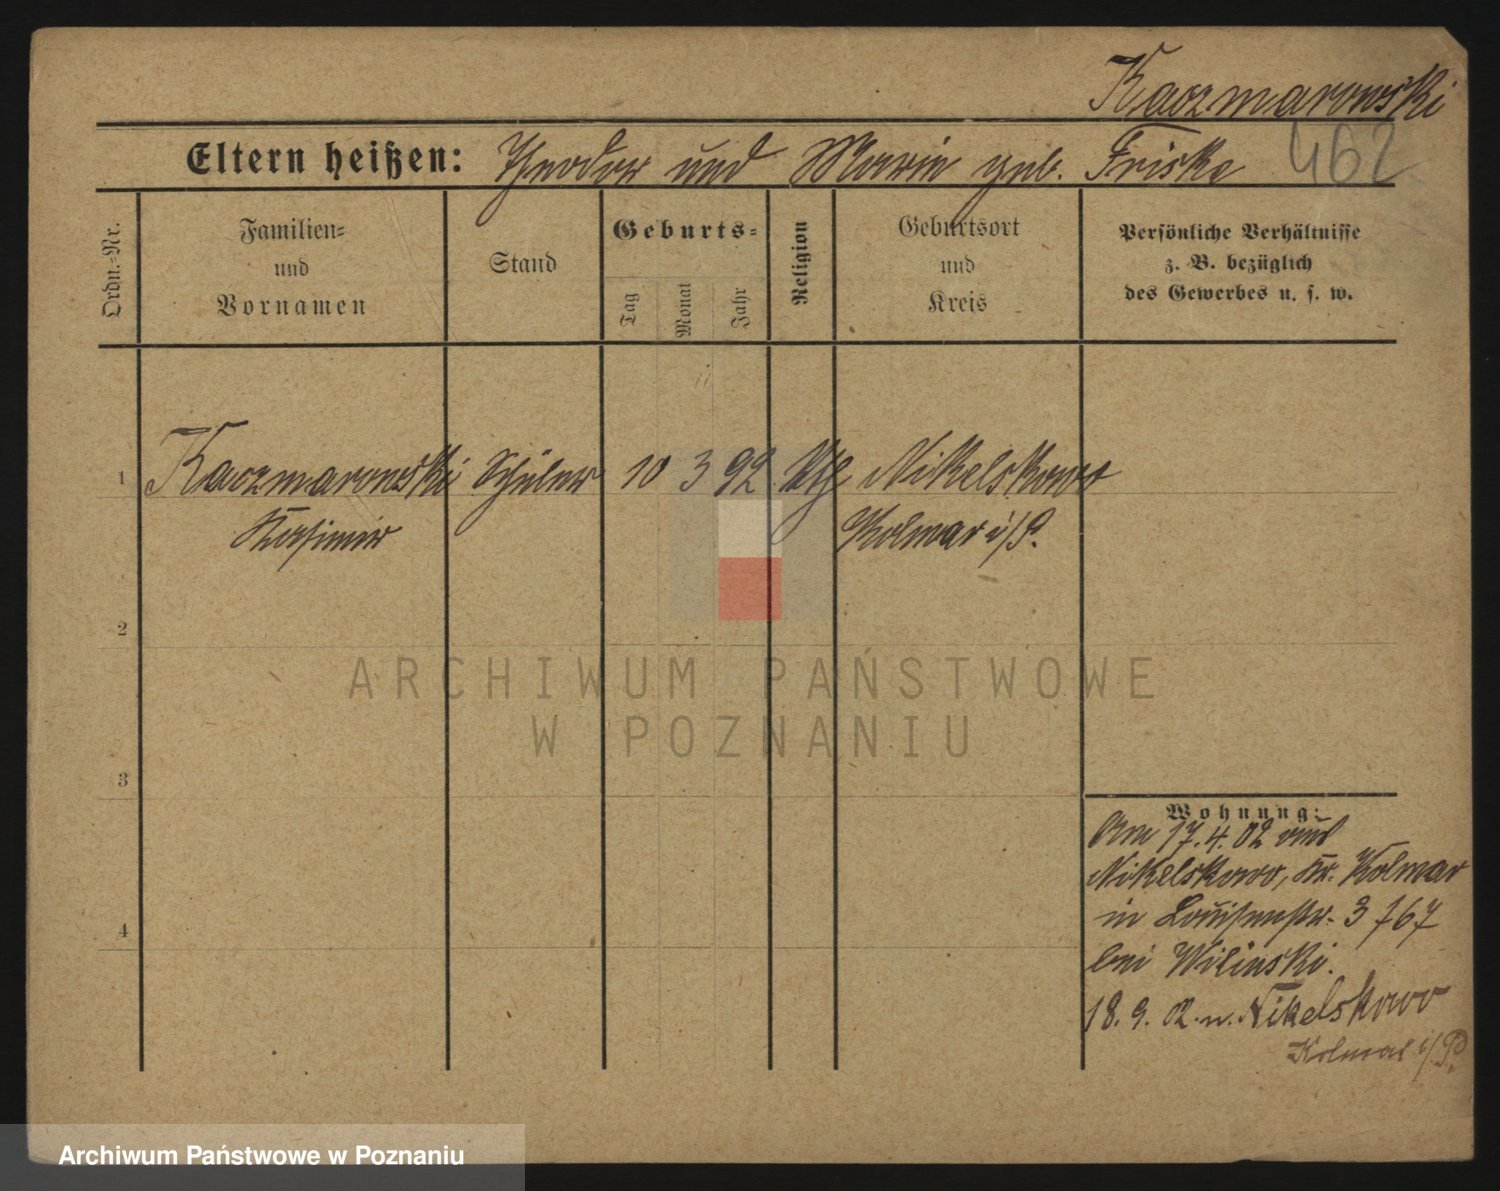 Kaczmarowski
Eltern heißen: Theodor und Marie geb. Friske 462
Ordn.-Nr.
Familien-
und
Vornamen
Stand
Geburts-
Tag
Monat
Jahr
Religion
Geburtsort
und
Kreis
Persönliche Verhältnisse
z. B. bezüglich
des Gewerbes u. s. w.
1 Kaczmarowski Schüler 10 3 92 kth Nikelskowo
Kasimir Kolmar i/P.
2
3
4
Wohnung:
Am 17.4.02 aus
Nikelskowo, Kr. Kolmar
in Louisenstr. 3 /67
bei Wilinski.
18. 9. 02. n. Nikelskowo
Kolmar i/P.
ARCHIWUM PAŃSTWOWE
W POZNANIU
Archiwum Państwowe w Poznaniu